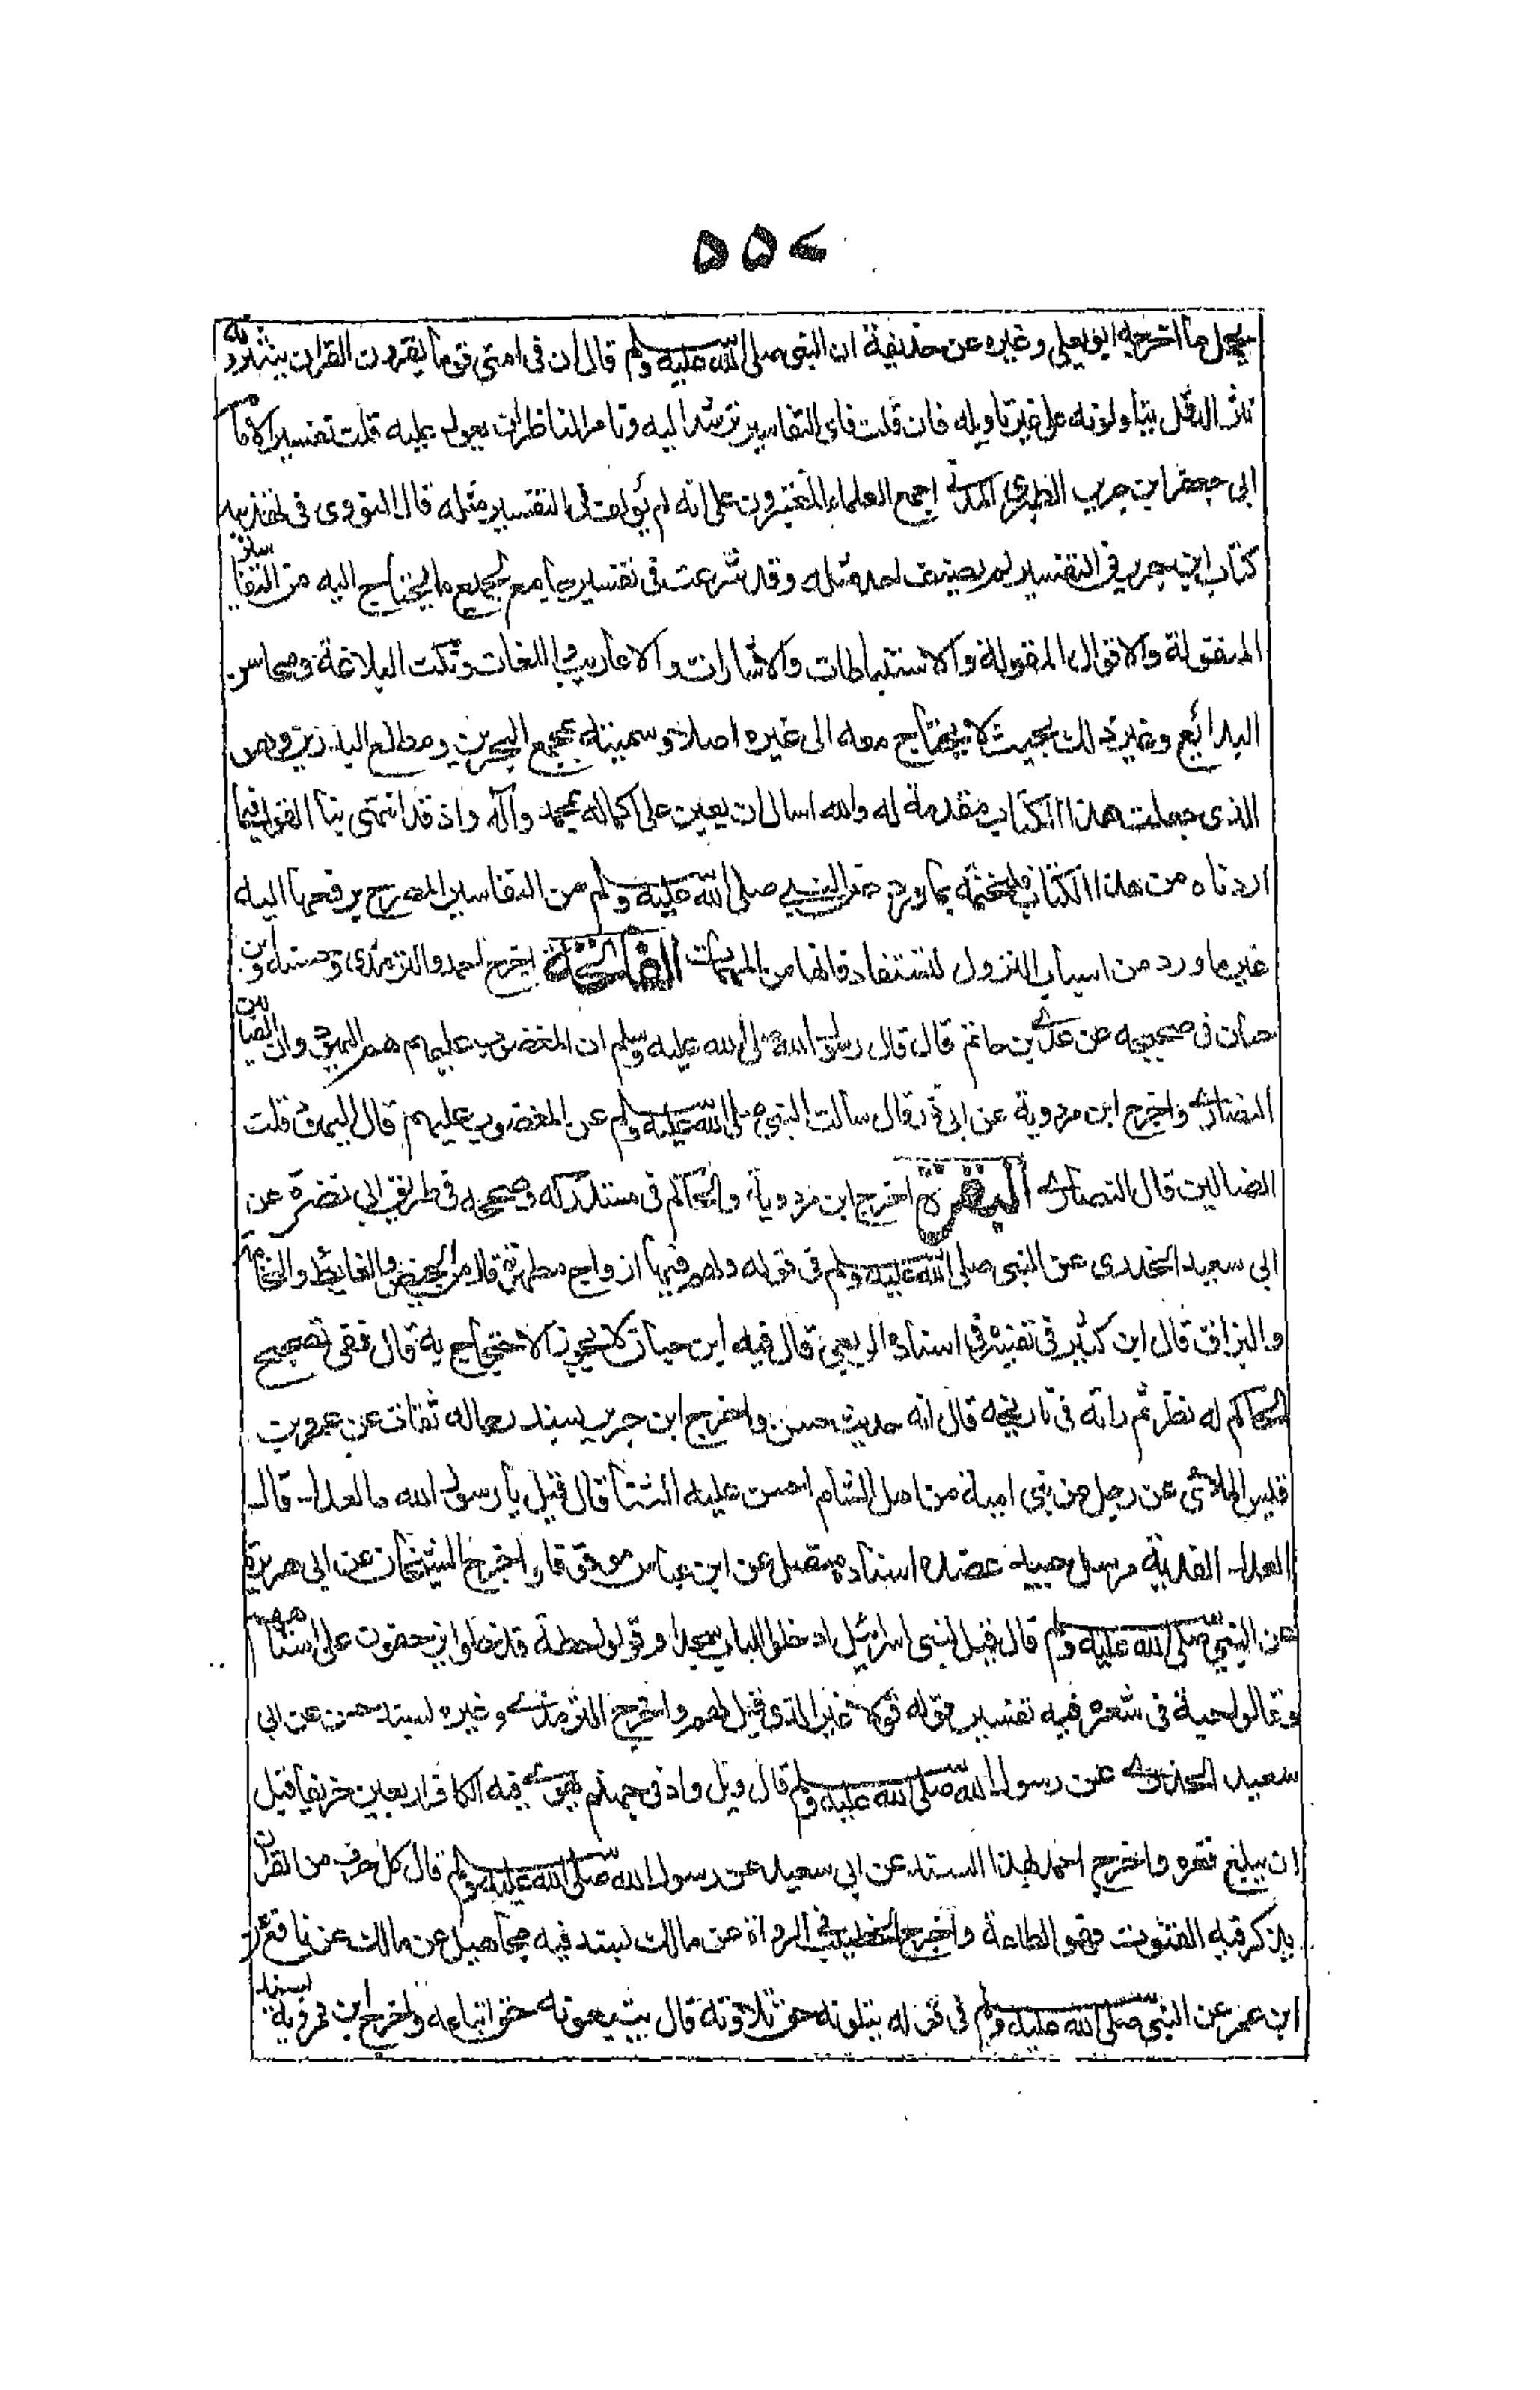 ۵۵۷
يحمل ما اخرجه ابو يعلى وغيره عن حذيفة ان النبى صلى الله عليه وسلم قال ان فى امتى قوما يقرون القران ينثرونه
نثر الدقل يتاولونه على غير تاويله فان قلت فاى التفاسير ترشد اليه وتامر الناظر ان يعول عليه قلت تفسير الامام
ابى جعفر ابن جرير الطبرى الذى اجمع العلماء المعتبرون على انه لم يؤلف فى التفسير مثله قال النووى فى تهذيبه
كتاب ابن جرير فى التفسير لم يصنف احد مثله وقد شرعت فى تفسير جامع لجميع ما يحتاج اليه من التفاسير
المنقولة والاقوال المقولة والاستنباطات والاشارات والاعاريب واللغات ونكت البلاغة ومحاسن
البدائع وغير ذلك بحيث لا يحتاج معه الى غيره اصلا وسميته بمجمع البحرين ومطلع البدرين وهو
الذى جعلت هذا الكتاب مقدمة له والله اسال ان يعين على اكماله بمحمد وآله واذ قد انتهى بنا القول فيما
اردناه من هذا الكتاب فلنختمه بما ورد عن النبى صلى الله عليه وسلم من التفاسير المصرح برفعها اليه
غير ما ورد من اسباب النزول لتستفاد فانها من المهمات الفاتحة اخرج احمد والترمذى وحسنه وابن
حبان فى صحيحه عن عدى بن حاتم قال قال رسول الله صلى الله عليه وسلم ان المغضوب عليهم هم اليهود وان الضالين
النصارى واخرج ابن مردوية عن ابى ذر قال سالت النبى صلى الله عليه وسلم عن المغضوب عليهم قال اليهود قلت
الضالين قال النصارى البقرة اخرج ابن مردوية والحاكم فى مستدركه وصححه فى طريق ابى نضرة عن
ابى سعيد الخدرى عن النبى صلى الله عليه وسلم فى قوله ولهم فيها ازواج مطهرة قال من الحيض والغائط والنخامة
والبزاق قال ابن كثير فى تفسيره فى اسناده الربعى قال فيه ابن حبان لا يجوز الاحتجاج به قال ففى تصحيح
الحاكم له نظر ثم راته فى تاريخه قال انه حديث حسن واخرج ابن جرير بسند رجاله ثقات عن عمرو بن
قليس الملائى عن رجل من بنى امية من اهل الشام احسن عليه الثنا قال قيل يا رسول الله ما العدل قال
العدل الفدية مرسل جيد عضده اسناده متصل عن ابن عباس موقوفا واخرج الشيخان عن ابى هريرة
عن النبى صلى الله عليه وسلم قال قيل لبنى اسرائيل ادخلوا الباب سجدا وقولوا حطة فدخلوا يزحفون على استاههم
وقالوا حبة فى شعرة فيه تفسير قوله قولا غير الذى قيل لهم واخرج الترمذى وغيره بسند حسن عن ابى
سعيد الخدرى عن رسول الله صلى الله عليه وسلم قال ويل واد فى جهنم يهوى فيه الكافر اربعين خريفا قبل
ان يبلغ قعره واخرج احمد بهذا السند عن ابى سعيد عن رسول الله صلى الله عليه وسلم قال كل حرف من القران
يذكر فيه القنوت فهو الطاعة واخرج الخطيب فى الرواة عن مالك بسند فيه مجاهيل عن مالك عن نافع عن
ابن عمر عن النبى صلى الله عليه وسلم فى قوله يتلونه حق تلاوته قال يتبعونه حق اتباعه واخرج ابن مردوية بسند